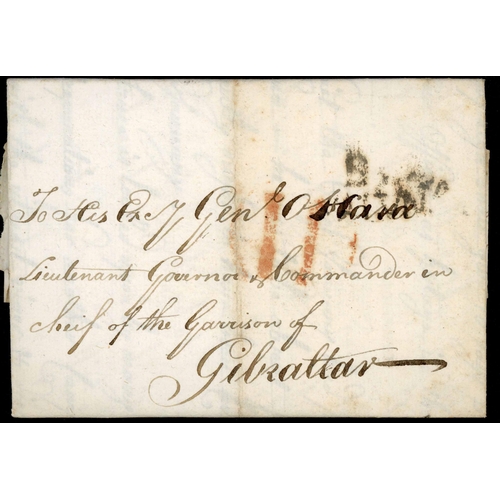 To His Exy Genl. O Hara
Lieutenant Governor & Commander in
cheif of the Garrison of
Gibraltar